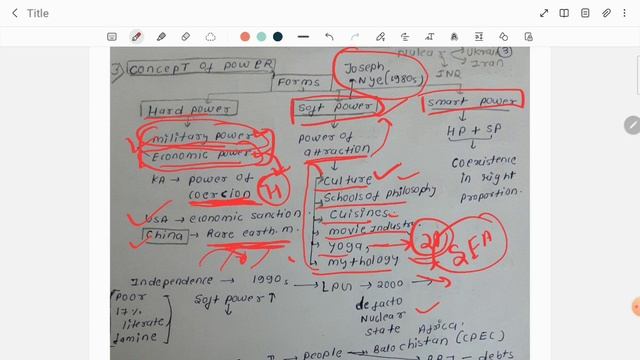 Title
Nuclear
Ukraine 3
Iran
INR
3) CONCEPT OF POWER
FORMS
Joseph Nye (1980s)
Hard power
Soft power
Smart power
military power
Economic power
KA → power of coercion
H
USA → economic sanction
China → Rare earth. m.
power of attraction
Culture
Schools of philosophy
Cuisines
movie industry
Yoga
mythology
SEA
HP + SP
Coexistence in right proportion.
Independence → 1990s → LPG → 2000 →
Poor
17% literate
famine
Soft power ↑
defacto Nuclear state
Africa:
→ People → Balochistan (CPEC)
→ debts